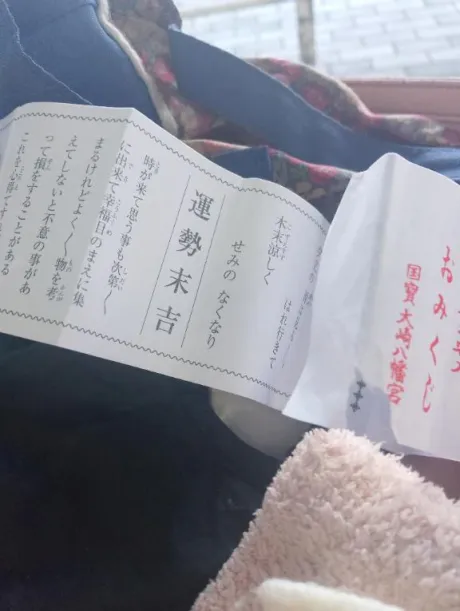 おみくじ
国寶大崎八幡宮
はれ行きて
木末涼しく
せみの なくなり
運勢末吉
時が来て思う事も次第〱
に出来て幸福目のまえに集
まるけれどよく〱物を考
えてしないと不意の事があ
って損をすることがある
これを心得て